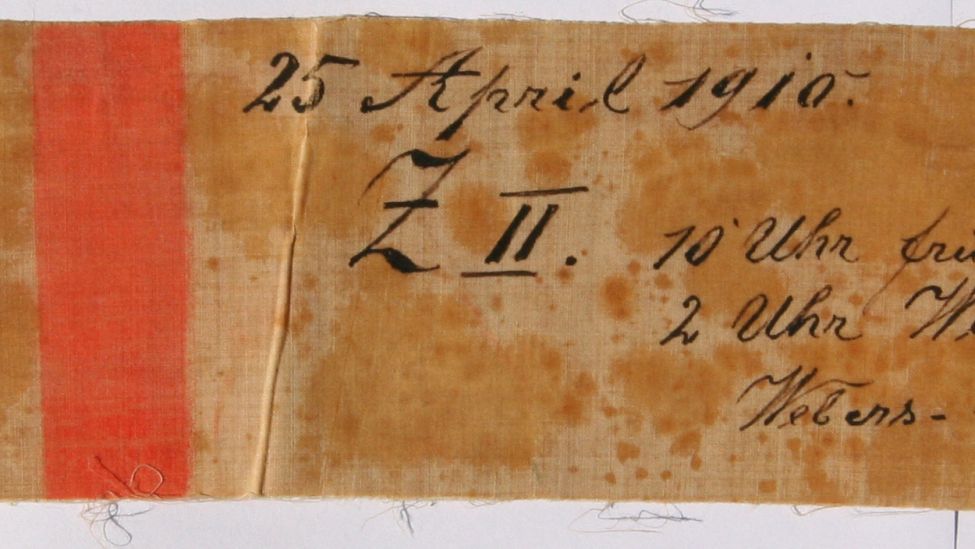 25 April 1910.
Z II.
10 Uhr frü
2 Uhr W
Webers-